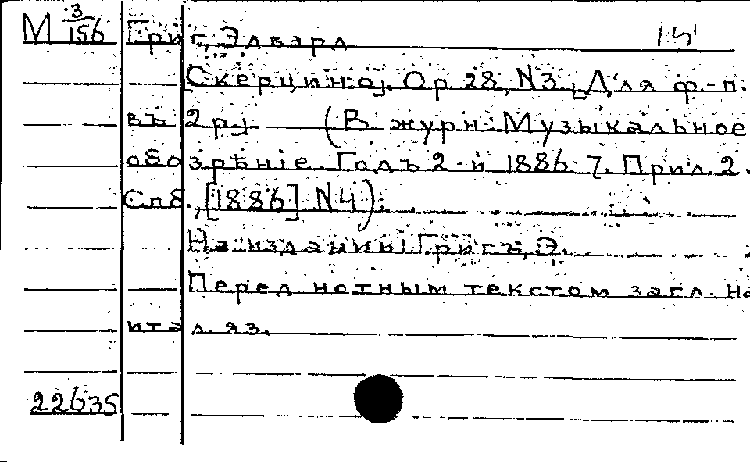 М 3/156 Григ, Эдвард
[Скерцино]. Ор 28, N3. [Для ф.-п.
въ 2 р.] (В журн: Музыкальное
обозрѣніе. Годъ 2-й 1886-7. Прил. 2.
Спб., [1886] N4).
На издании Григъ, Э.
Перед нотным текстом загл. на
итал. яз.
22635